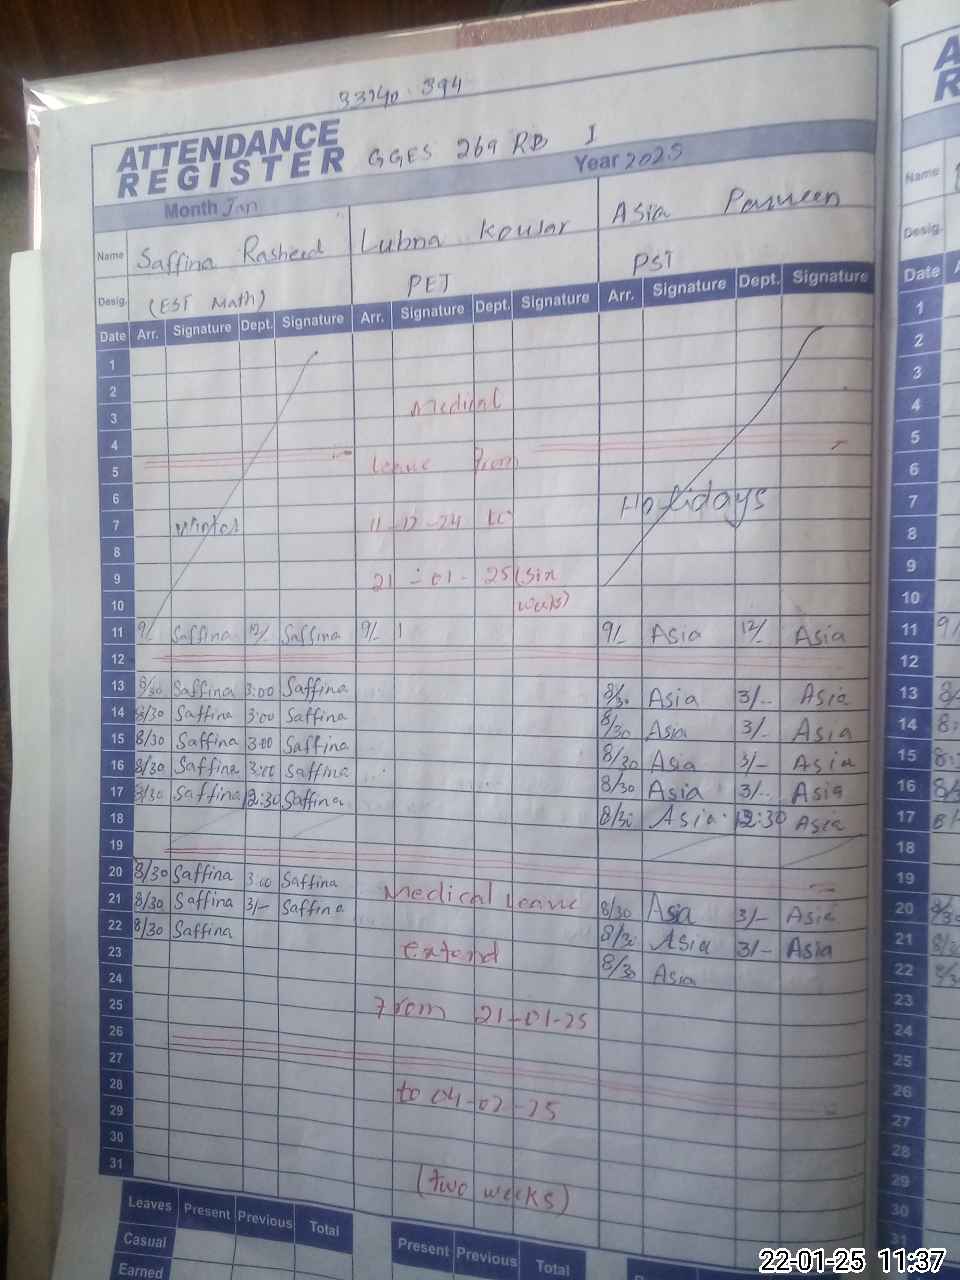 33740 394
ATTENDANCE REGISTER GGES 269 RB I
Month Jan Year 2025
Name Saffina Rasheed Lubna Kousar Asia Parveen
Desig. (EST Math) PET PST
Date Arr. Signature Dept. Signature Arr. Signature Dept. Signature Arr. Signature Dept. Signature
1
2 Medical
3
4
5 leave from
6
7 Winter 11-12-24 to Holidays
8
9 21-01-25 (six
10 weeks)
11 9/- Saffina 12/- Saffina 9/- 9/- Asia 12/- Asia
12
13 8/30 Saffina 3:00 Saffina 8/30 Asia 3/- Asia
14 8/30 Saffina 3:00 Saffina 8/30 Asia 3/- Asia
15 8/30 Saffina 3:00 Saffina 8/30 Asia 3/- Asia
16 8/30 Saffina 3:00 Saffina 8/30 Asia 3/- Asia
17 8/30 Saffina 12:30 Saffina 8/30 Asia 12:30 Asia
18
19
20 8/30 Saffina 3:00 Saffina Medical leave 8/30 Asia 3/- Asia
21 8/30 Saffina 3/- Saffina 8/30 Asia 3/- Asia
22 8/30 Saffina extend 8/30 Asia
23
24
25 From 21-01-25
26
27
28 to 04-02-25
29
30
31 (two weeks)
Leaves Present Previous Total Present Previous Total
Casual
Earned
Name
Desig.
Date
1
2
3
4
5
6
7
8
9
10
11
12
13
14
15
16
17
18
19
20
21
22
23
24
25
26
27
28
29
30
31
22-01-25 11:37